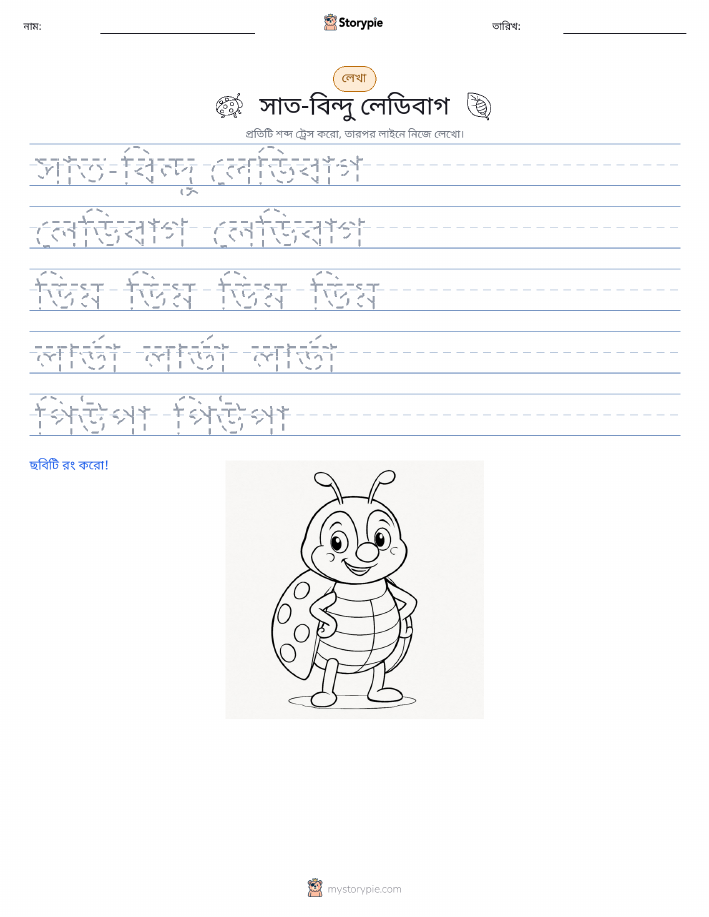 নাম:
Storypie
তারিখ:
লেখা
সাত-বিন্দু লেডিবাগ
প্রতিটি শব্দ ট্রেস করো, তারপর লাইনে নিজে লেখো।
সাত-বিন্দু লেডিবাগ
লেডিবাগ লেডিবাগ
ডিম ডিম ডিম ডিম
লার্ভা লার্ভা লার্ভা
পিউপা পিউপা
ছবিটি রং করো!
mystorypie.com